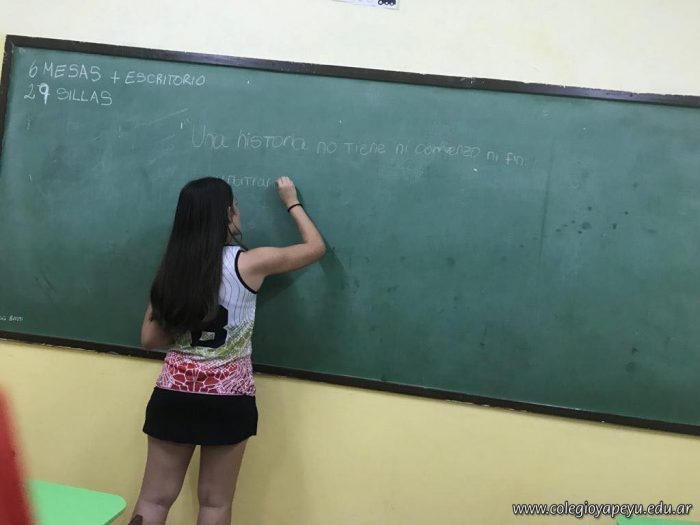 6 MESAS + ESCRITORIO
29 SILLAS
Una historia no tiene ni comienzo ni fin
www.colegioyapeyu.edu.ar